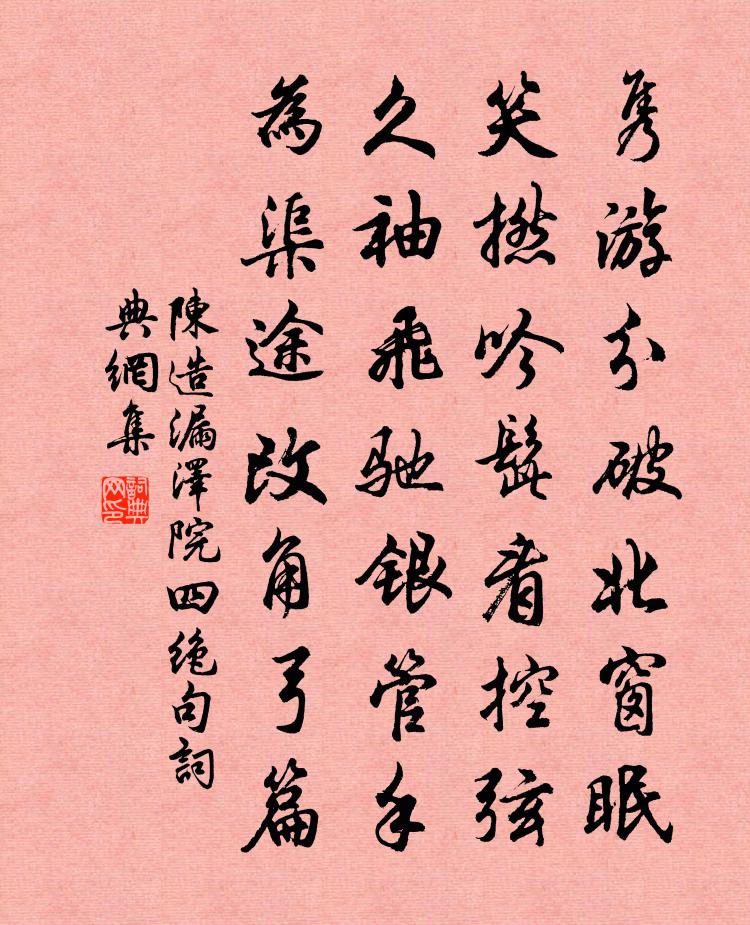 隽游分破北窗眠
笑撚吟髭看控弦
久袖飛馳銀管手
為渠途改角弓篇
陳造漏澤院四絶句詞
典網集
詞典網印